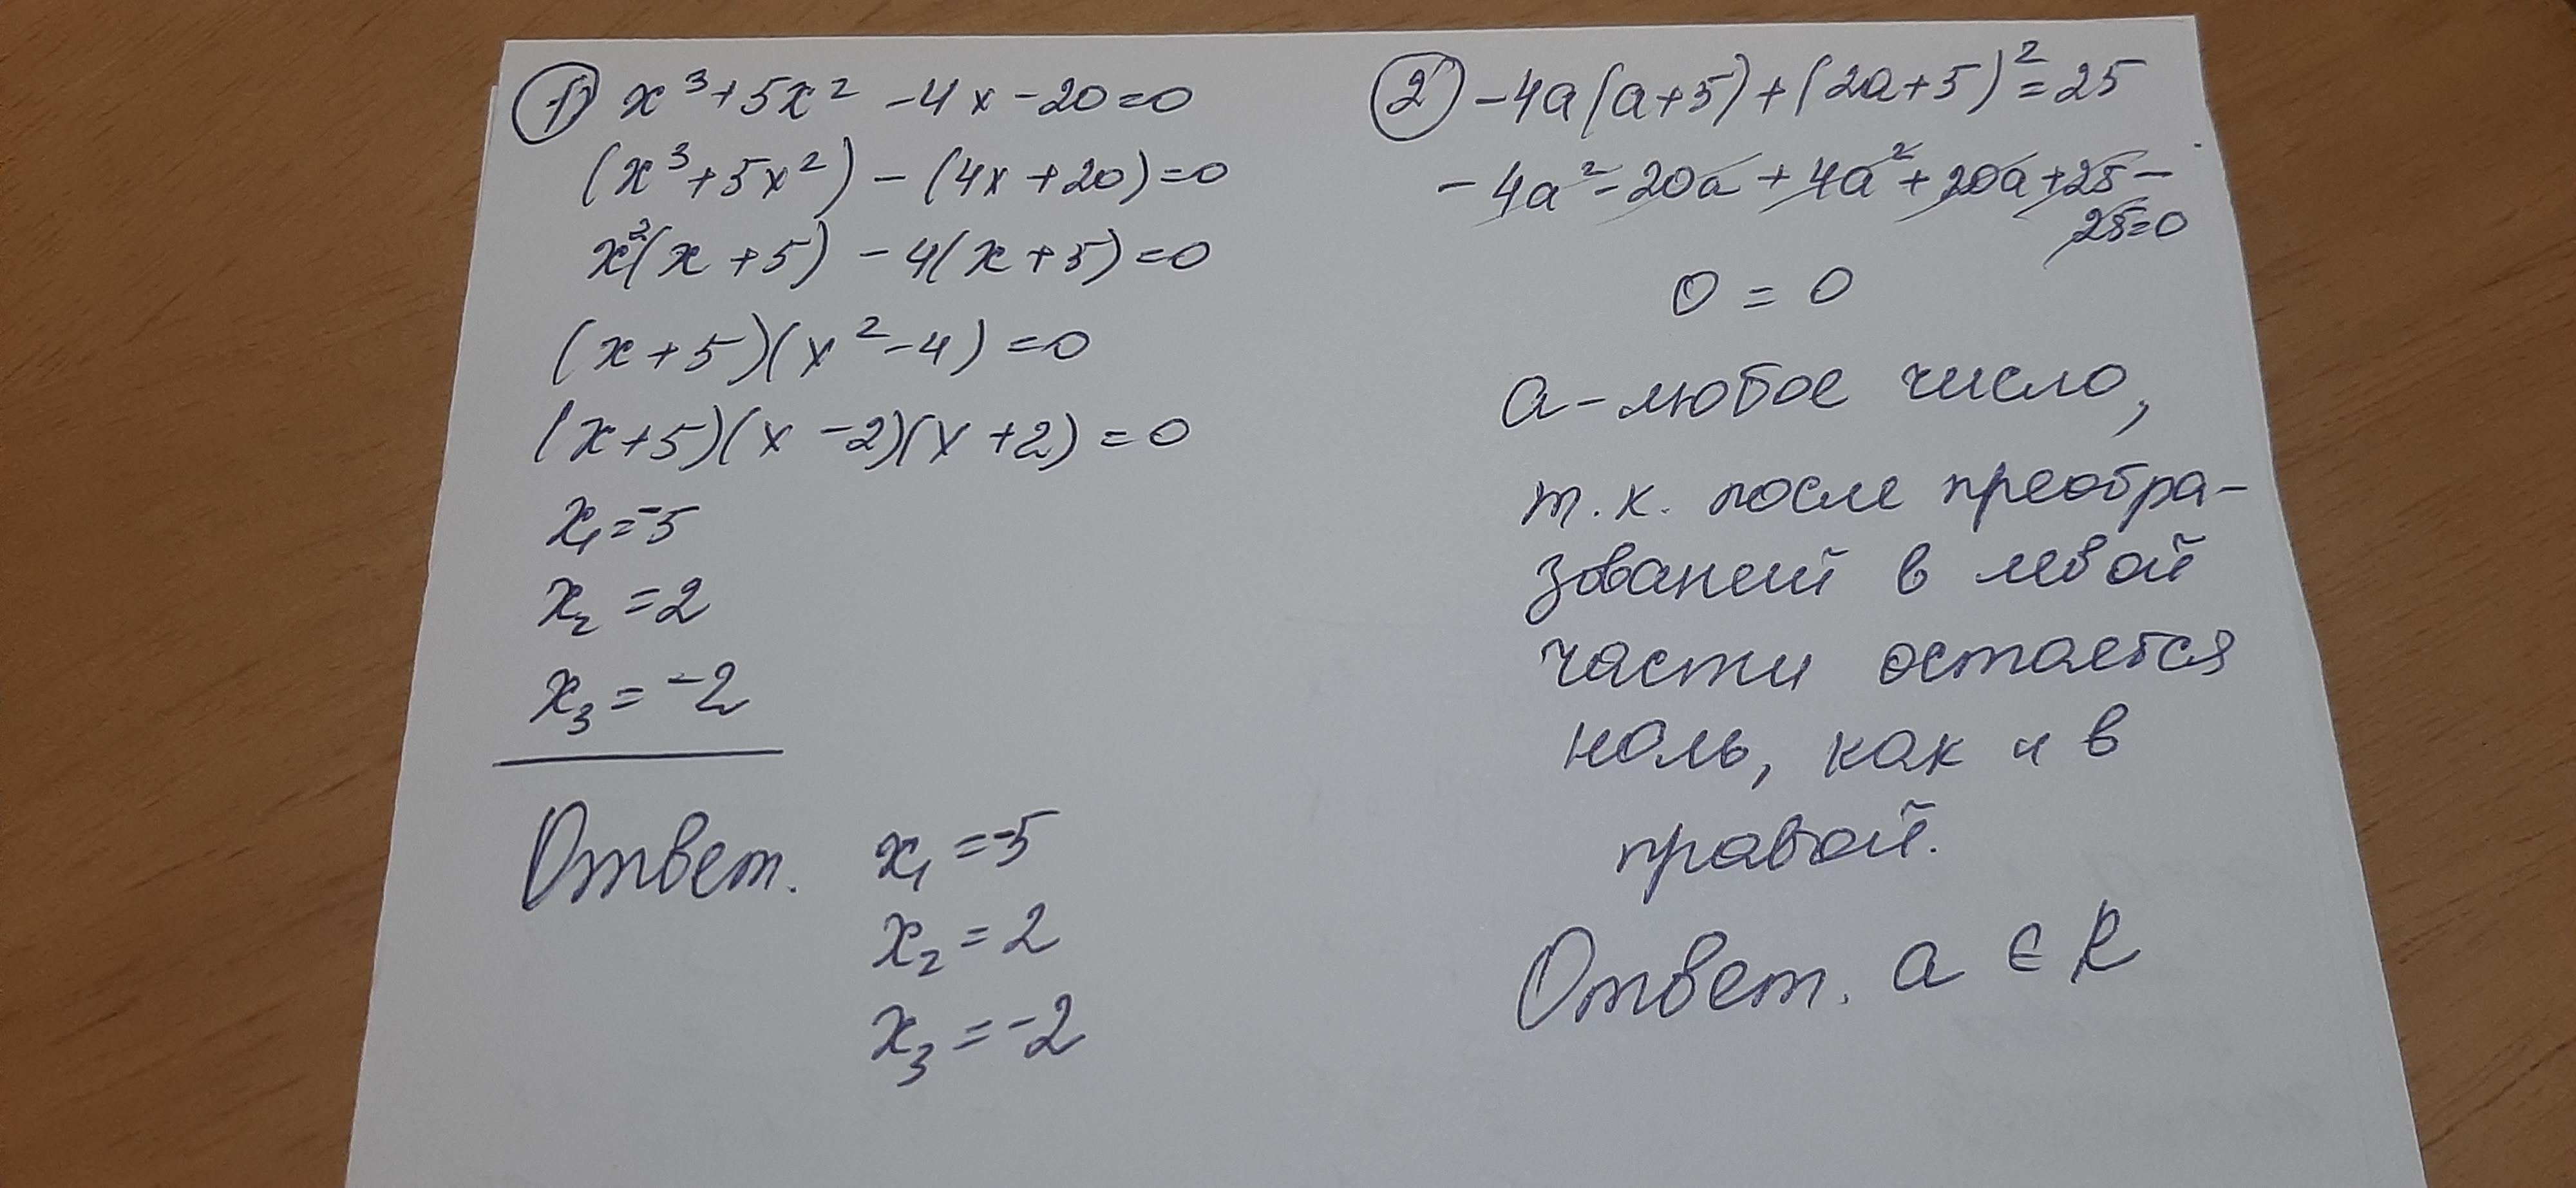 ① x³+5x²-4x-20=0
(x³+5x²)-(4x+20)=0
x²(x+5)-4(x+5)=0
(x+5)(x²-4)=0
(x+5)(x-2)(x+2)=0
x₁=-5
x₂=2
x₃=-2
Ответ. x₁=-5
x₂=2
x₃=-2
② -4a(a+5)+(2a+5)²=25
-4a²-20a+4a²+20a+25-
25=0
0=0
a-любое число,
т.к. после преобра-
зований в левой
части остается
ноль, как и в
правой.
Ответ. a ∈ R